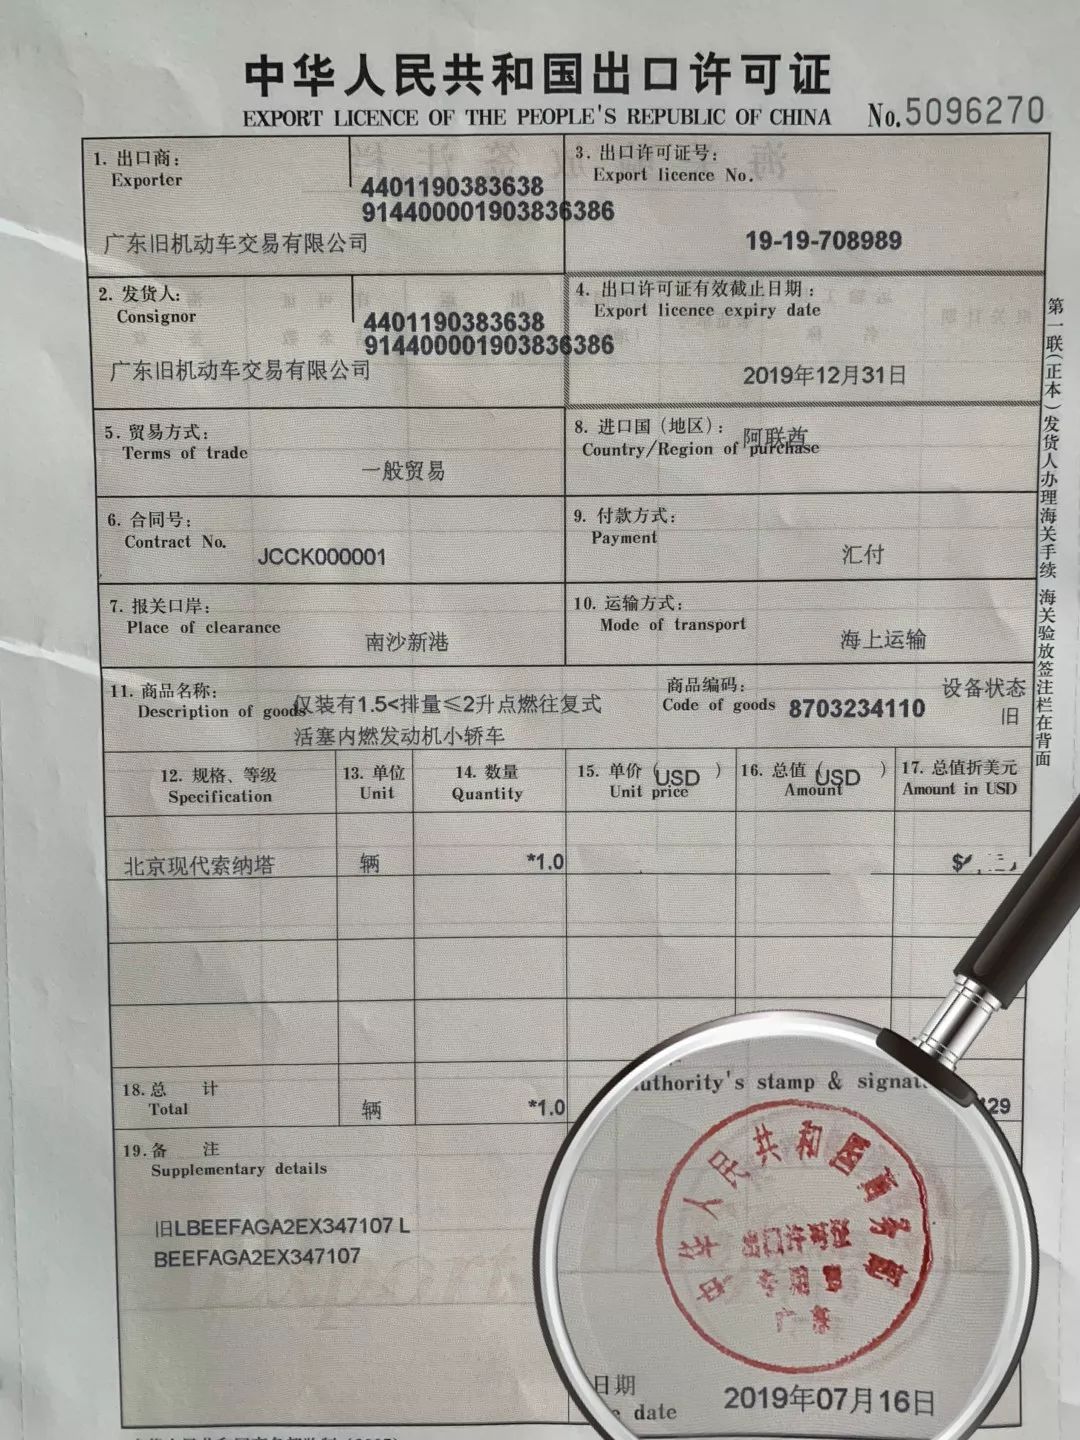 中华人民共和国出口许可证
EXPORT LICENCE OF THE PEOPLE'S REPUBLIC OF CHINA
No.5096270
1. 出口商:
Exporter
4401190383638
914400001903836386
广东旧机动车交易有限公司
3. 出口许可证号:
Export licence No.
19-19-708989
2. 发货人:
Consignor
4401190383638
914400001903836386
广东旧机动车交易有限公司
4. 出口许可证有效截止日期:
Export licence expiry date
2019年12月31日
5. 贸易方式:
Terms of trade
一般贸易
8. 进口国(地区):
Country/Region of purchase
阿联酋
6. 合同号:
Contract No.
JCCK000001
9. 付款方式:
Payment
汇付
7. 报关口岸:
Place of clearance
南沙新港
10. 运输方式:
Mode of transport
海上运输
11. 商品名称:
Description of goods
仅装有1.5<排量≤2升点燃往复式
活塞内燃发动机小轿车
商品编码:
Code of goods
8703234110
设备状态
旧
12. 规格、等级
Specification
13. 单位
Unit
14. 数量
Quantity
15. 单价(USD)
Unit price
16. 总值(USD)
Amount
17. 总值折美元
Amount in USD
北京现代索纳塔
辆
*1.0
$
18. 总 计
Total
辆
*1.0
129
19. 备 注
Supplementary details
旧LBEEFAGA2EX347107 L
BEEFAGA2EX347107
authority's stamp & signat
中华人民共和国商务部
出口许可证
专用章
广东
日期
date
2019年07月16日
第一联(正本)发货人办理海关手续 海关验放签注栏在背面